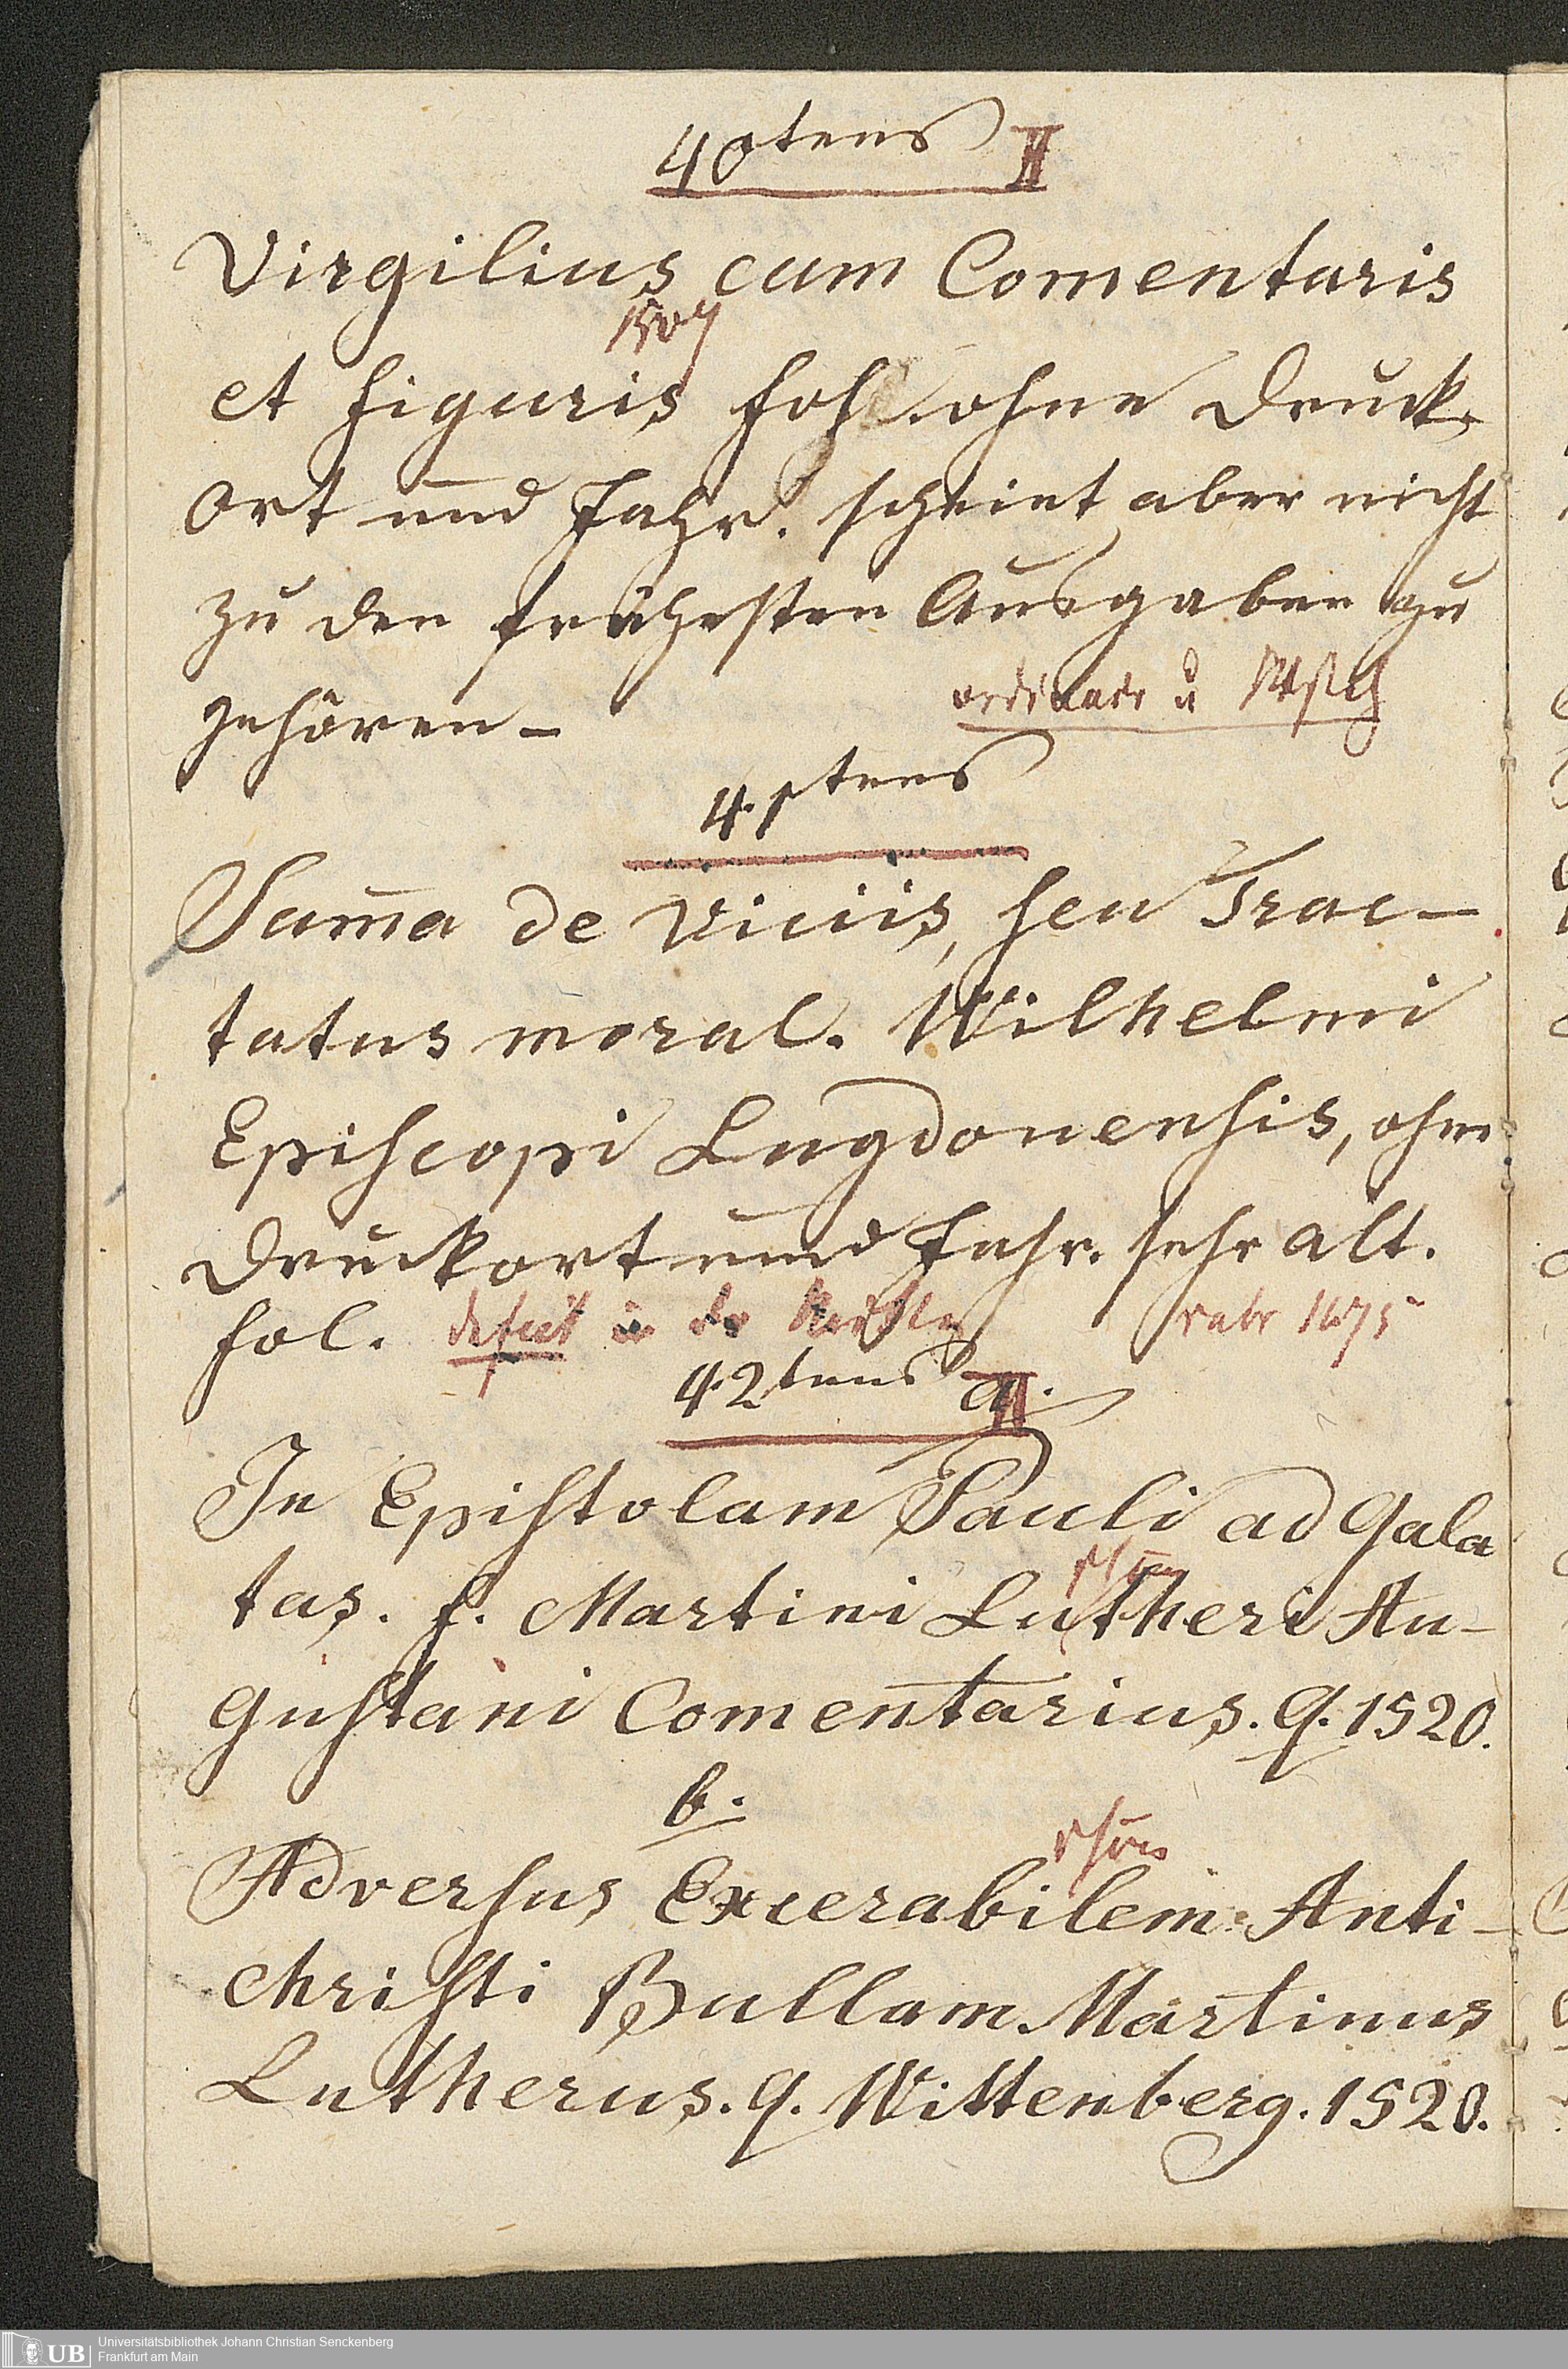 40tens II
Virgilius cum Comentaris
1507
et figuris fol. ohne Druck,
Ort und Jahr. scheint aber nicht
zu den frühesten Ausgaben zu
gehören-
ordinair u
41tens
Sum̄a de Viciis, seu Trac-
tatus moral. Wilhelmi
Episcopi Lugdonensis, ohne
Druckort und Jahr. sehr alt.
fol. defect in der 1475
42tens a. II
In Epistolam Pauli ad Gala
tas. f. Martini Lutheri Au-
gustani Comentarius. q. 1520.
b.
Adversus Excerabilem Anti-
christi Bullam. Martinus
Lutherus. q. Wittenberg. 1520.
UB Universitätsbibliothek Johann Christian Senckenberg
Frankfurt am Main